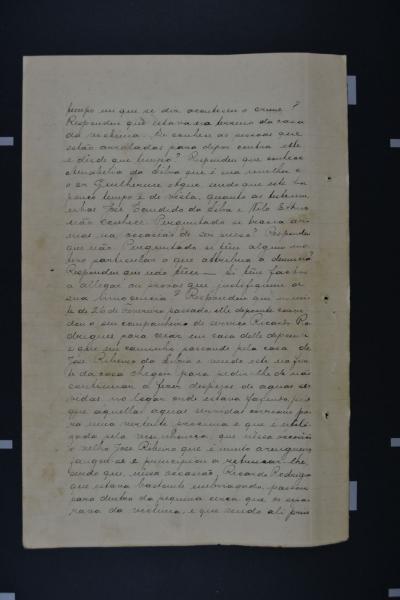 tempo em que se diz aconteceu o crime?
Respondeu que estava no terreno da casa
da victima. Se conhece as pessoas que
estão arroladas para depor contra elle
e desde que tempo? Respondeu que conhece
da Silva que é sua mulher e
o sr Guilherme sendo que este ha
pouco tempo é de vista, quanto as testemu-
nhas José Candido da Silva e Nilo
não conhece. Perguntado se trazia ar-
mas na occasião de ser preso? Respondeu
que não. Perguntado se tem algum mo-
tivo particular a que attribua a denuncia?
Respondeu que não tem. Si tem factos
a allegar ou provas que justifiquem a
sua innocencia? Respondeu que
de 26 de Fevereiro passado elle depoente convi-
dou o seu companheiro de serviço Ricardo Ro-
drigues para cear em casa delle depoente
e que em caminho passando pela casa de
José Ribeiro da Silva e sendo este na fren-
te da casa chegou para pedir-lhe de não
continuar a fazer despejos de aguas ser-
vidas no logar onde estava fazendo, por
que aquellas aguas servidas corriam pa-
ra uma vertente proxima e que é utili-
zada pela visinhança, que nessa occasião
o velho José Ribeiro que é muito
zangou-se e principiou a
sendo que, nessa occasião, Ricardo Rodrigues
que estava bastante embriagado, passou
para dentro da pequena cerca que os sepa-
rava da victima, e que sendo ali